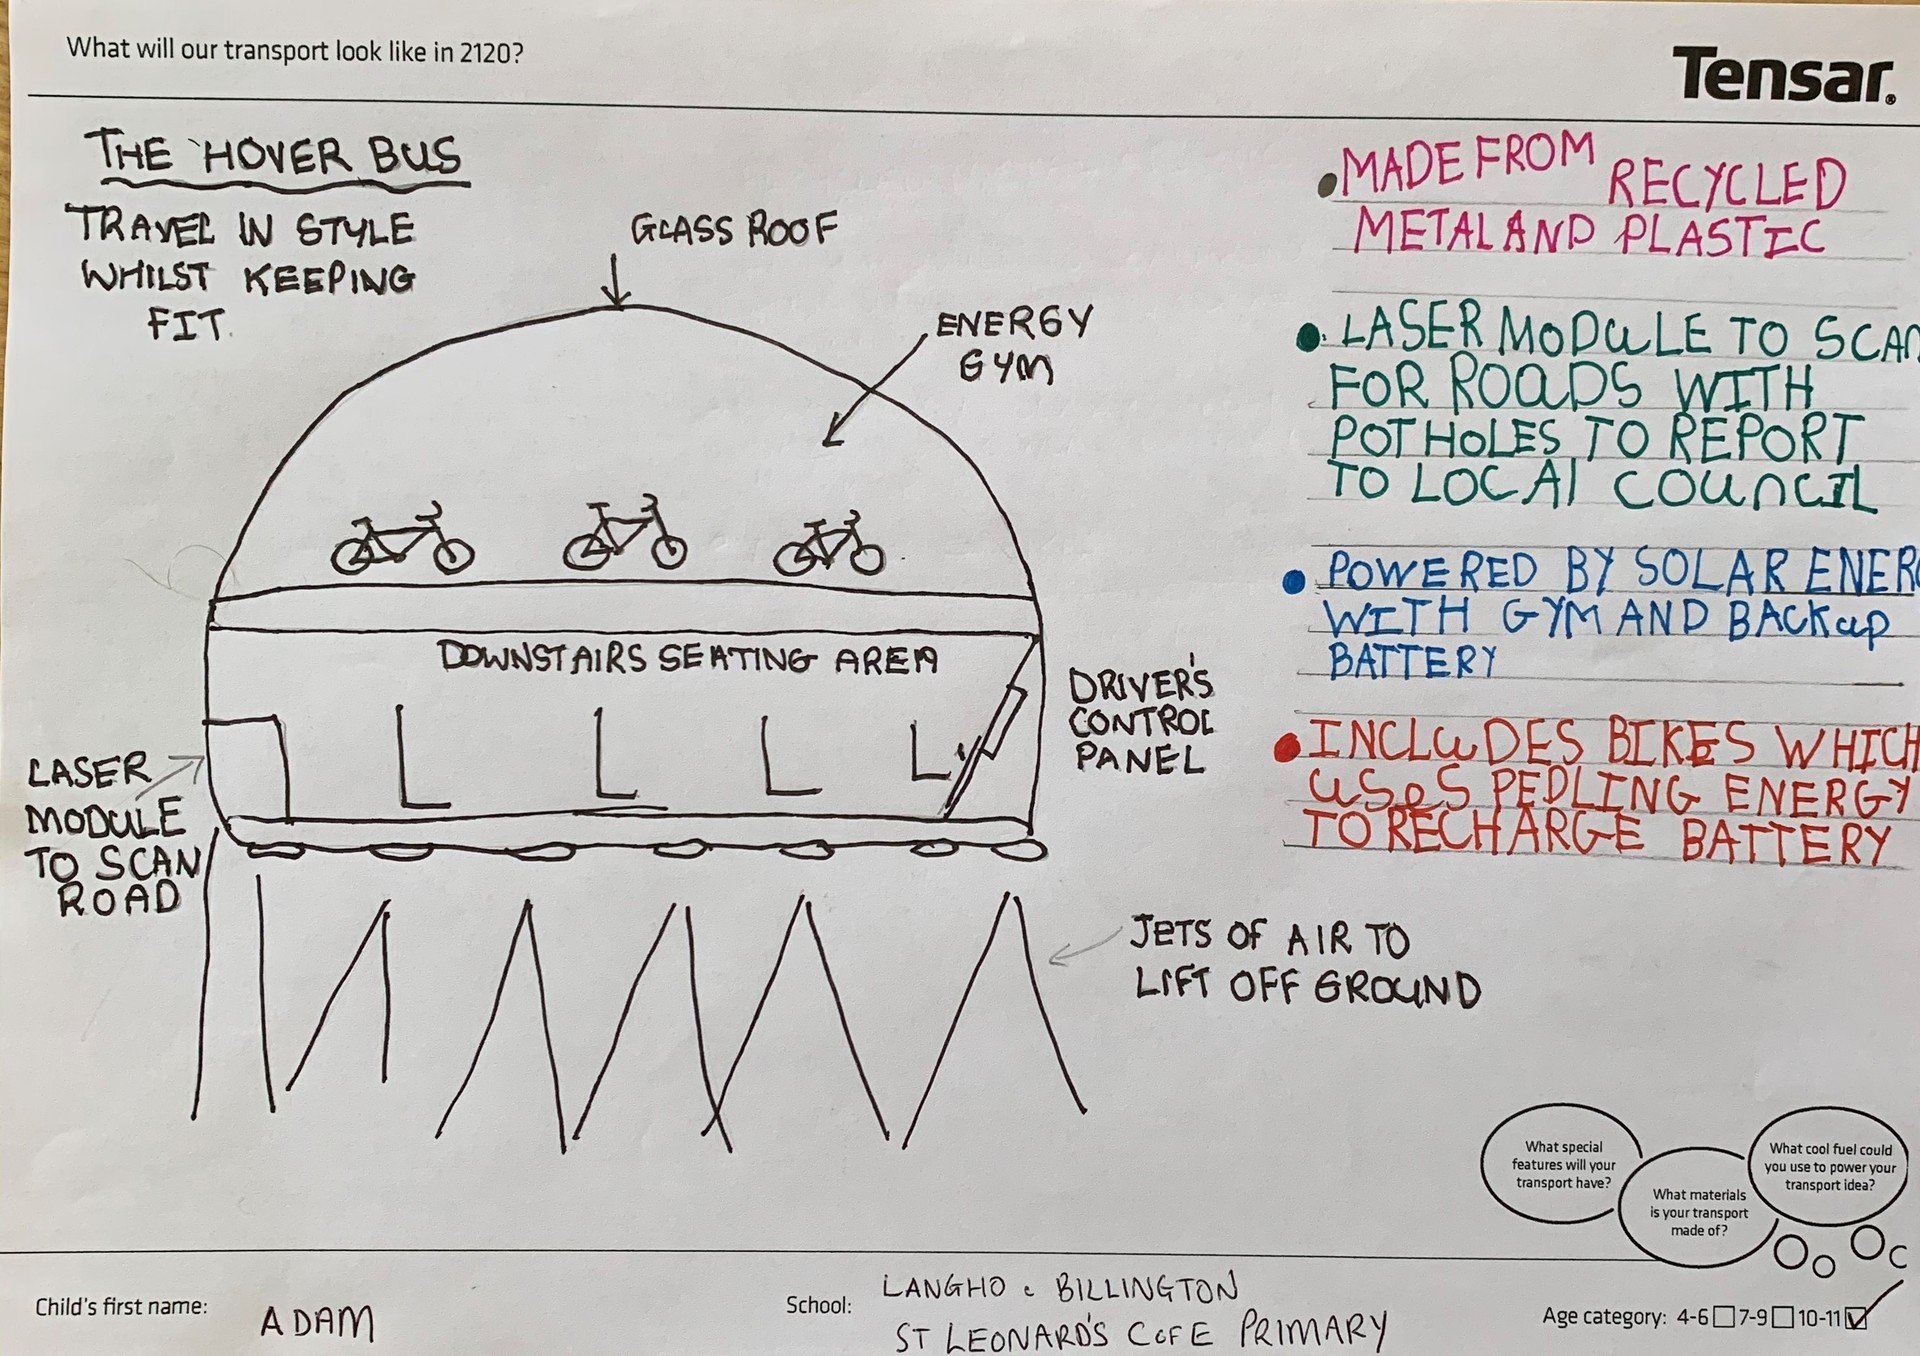 What will our transport look like in 2120?
Tensar®
THE HOVER BUS
TRAVEL IN STYLE
WHILST KEEPING
FIT.
GLASS ROOF
ENERGY
GYM
DOWNSTAIRS SEATING AREA
DRIVER'S
CONTROL
PANEL
LASER
MODULE
TO SCAN
ROAD
JETS OF AIR TO
LIFT OFF GROUND
• MADE FROM RECYCLED
METAL AND PLASTIC
• LASER MODULE TO SCAN
FOR ROADS WITH
POTHOLES TO REPORT
TO LOCAL COUNCIL
• POWERED BY SOLAR ENERG
WITH GYM AND BACKUP
BATTERY
• INCLUDES BIKES WHICH
USES PEDLING ENERGY
TO RECHARGE BATTERY
What special
features will your
transport have?
What materials
is your transport
made of?
What cool fuel could
you use to power your
transport idea?
Child's first name: ADAM
School: LANGHO & BILLINGTON
ST LEONARD'S CofE PRIMARY
Age category: 4-6 7-9 10-11